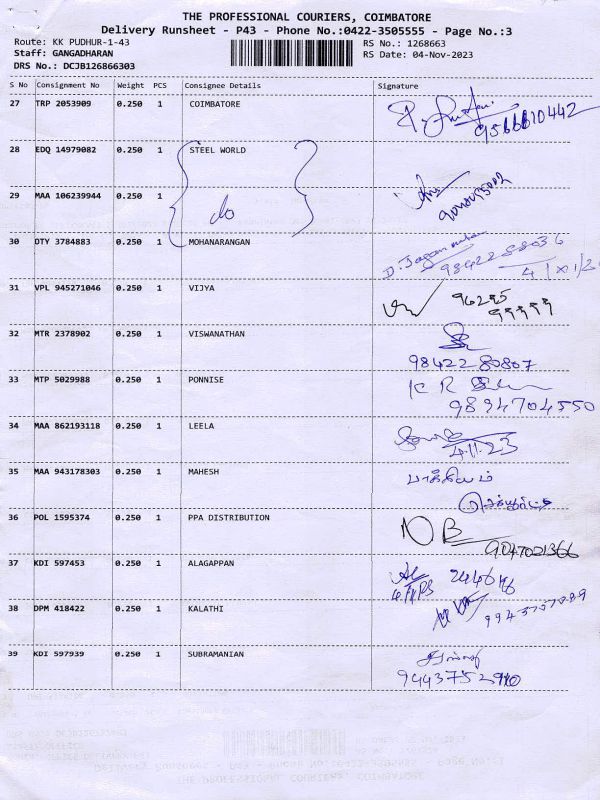 THE PROFESSIONAL COURIERS, COIMBATORE
Delivery Runsheet - P43 - Phone No.:0422-3505555 - Page No.:3
Route: KK PUDHUR-1-43 RS No.: 1268663
Staff: GANGADHARAN RS Date: 04-Nov-2023
DRS No.: DCJB126866303
S No Consignment No Weight PCS Consignee Details Signature
27 TRP 2053909 0.250 1 COIMBATORE
9566610442
28 EDQ 14979082 0.250 1 STEEL WORLD
29 MAA 106239944 0.250 1 do
30 DTY 3784883 0.250 1 MOHANARANGAN
9842288036
31 VPL 945271046 0.250 1 VIJYA 96295
99999
32 MTR 2378902 0.250 1 VISWANATHAN
9842280807
33 MTP 5029988 0.250 1 PONNISE K R
9894704550
34 MAA 862193118 0.250 1 LEELA
4.11.23
35 MAA 943178303 0.250 1 MAHESH பாக்கியம்
36 POL 1595374 0.250 1 PPA DISTRIBUTION N B
9047021366
37 KDI 597453 0.250 1 ALAGAPPAN
38 DPM 418422 0.250 1 KALATHI
39 KDI 597939 0.250 1 SUBRAMANIAN